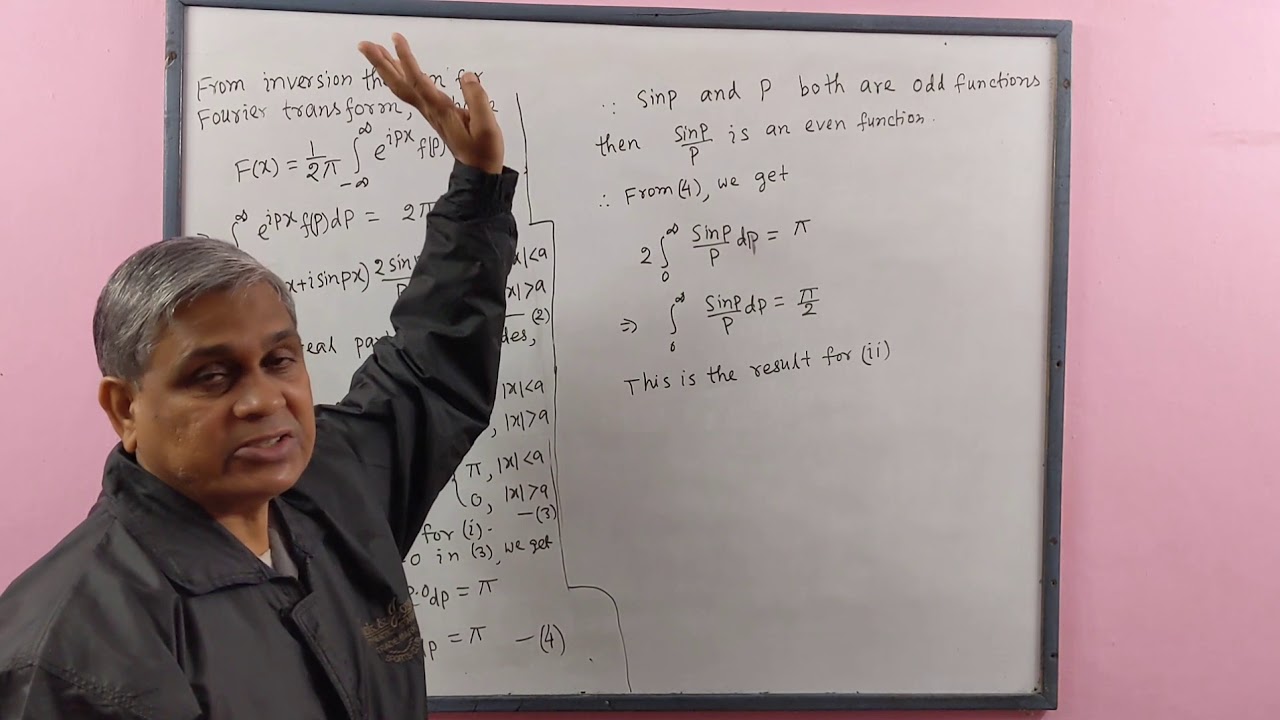 From inversion for
Fourier transform,
F(x) = 1/2π ∫_{-∞}^{∞} e^{ipx} f(p)
⇒ ∫^{∞} e^{ipx} f(p) dp = 2π
x+isinpx) 2sinp |x|<a
|x|>a
— (2)
real par des,
|x|<a
, |x|>a
π, |x|<a
0, |x|>a
—(3)
for (i).
0 in (3), we get
p.0 dp = π
dp = π —(4)
∵ Sinp and P both are odd functions
then Sinp/P is an even function.
∴ From (4), we get
2∫_0^∞ Sinp/P dp = π
⇒ ∫_0^∞ Sinp/P dp = π/2
This is the result for (ii)